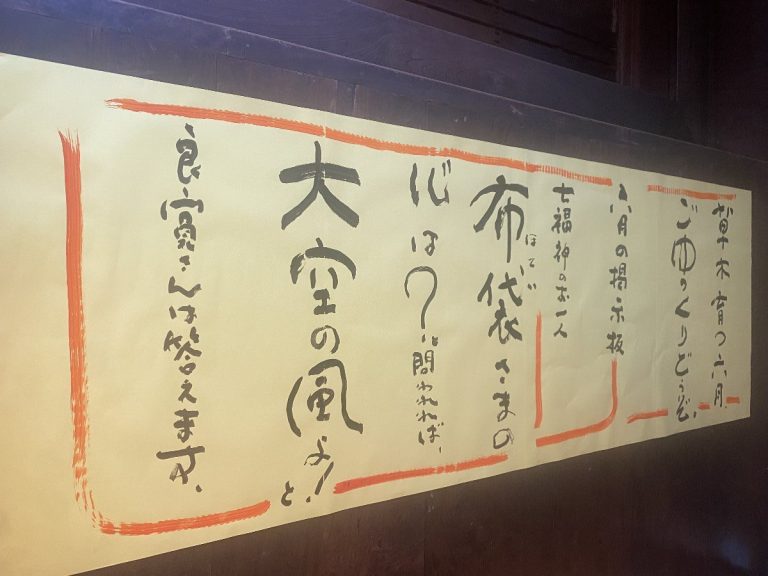 草木育つ六月
ごゆっくりどうぞ。
六月の掲示板
七福神のお一人
布袋さまの
ほてい
心は?と問われれば、
大空の風よ!と、
良寛さんは答えます。